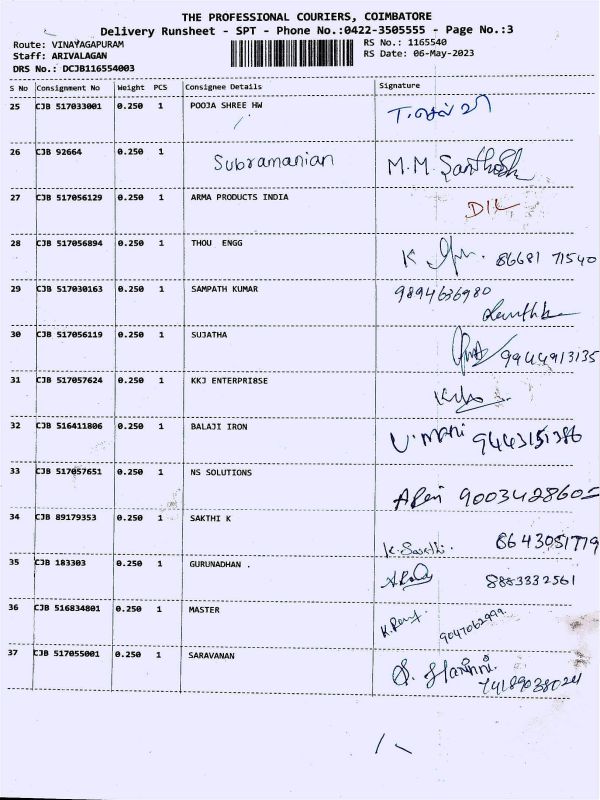 THE PROFESSIONAL COURIERS, COIMBATORE
Delivery Runsheet - SPT - Phone No.:0422-3505555 - Page No.:3
Route: VINAYAGAPURAM RS No.: 1165540
Staff: ARIVALAGAN RS Date: 06-May-2023
DRS No.: DCJB116554003
S No Consignment No Weight PCS Consignee Details Signature
25 CJB 517033001 0.250 1 POOJA SHREE HW
26 CJB 92664 0.250 1 Subramanian M.M. Santhosh
27 CJB 517056129 0.250 1 ARMA PRODUCTS INDIA D/L
28 CJB 517056894 0.250 1 THOU ENGG K 86681 71540
29 CJB 517030163 0.250 1 SAMPATH KUMAR 9894636980
30 CJB 517056119 0.250 1 SUJATHA 9944913135
31 CJB 517057624 0.250 1 KKJ ENTERPRI8SE
32 CJB 516411806 0.250 1 BALAJI IRON V. Mani 9443151386
33 CJB 517057651 0.250 1 NS SOLUTIONS 9003428605
34 CJB 89179353 0.250 1 SAKTHI K K. Sakthi. 8643051779
35 CJB 183303 0.250 1 GURUNADHAN . 8883332561
36 CJB 516834801 0.250 1 MASTER 9047062999
37 CJB 517055001 0.250 1 SARAVANAN S. Harinni. 74189038024